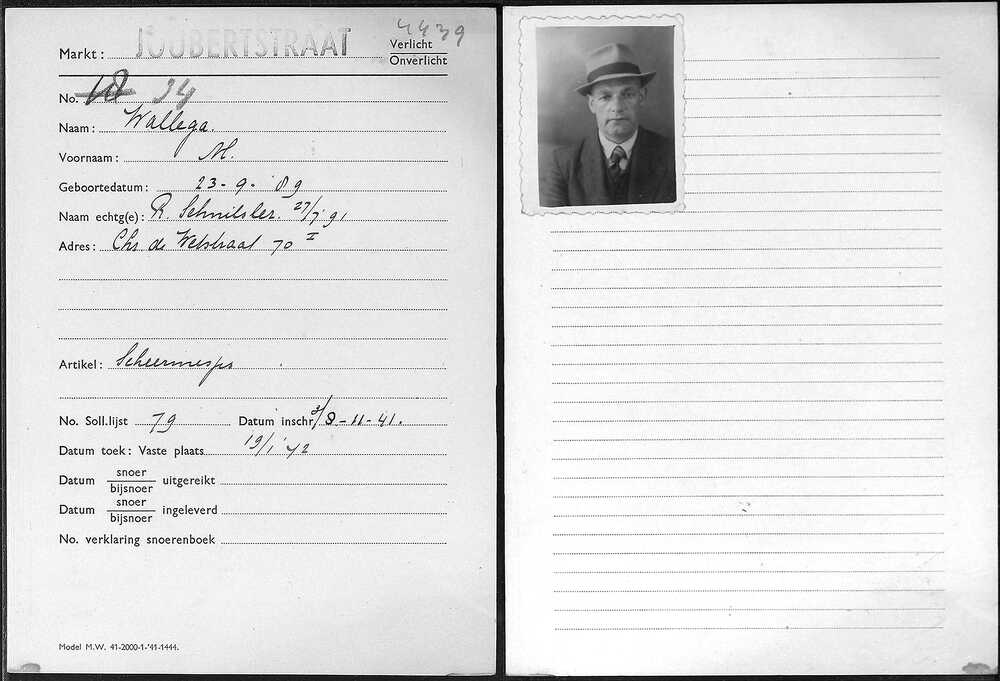 4439
Markt: JOUBERTSTRAAT Verlicht
Onverlicht
No. 18 34
Naam: Wallega.
Voornaam: M.
Geboortedatum: 23-9-89
Naam echtg(e): R. 27/7 91
Adres: Chr. de Wetstraat 70 I
Artikel: Scheermesjes
No. Soll.lijst 79 Datum inschr. 8-11-41.
Datum toek: Vaste plaats 19/1 '42
Datum snoer
bijsnoer uitgereikt
Datum snoer
bijsnoer ingeleverd
No. verklaring snoerenboek
Model M.W. 41-2000-1-'41-1444.